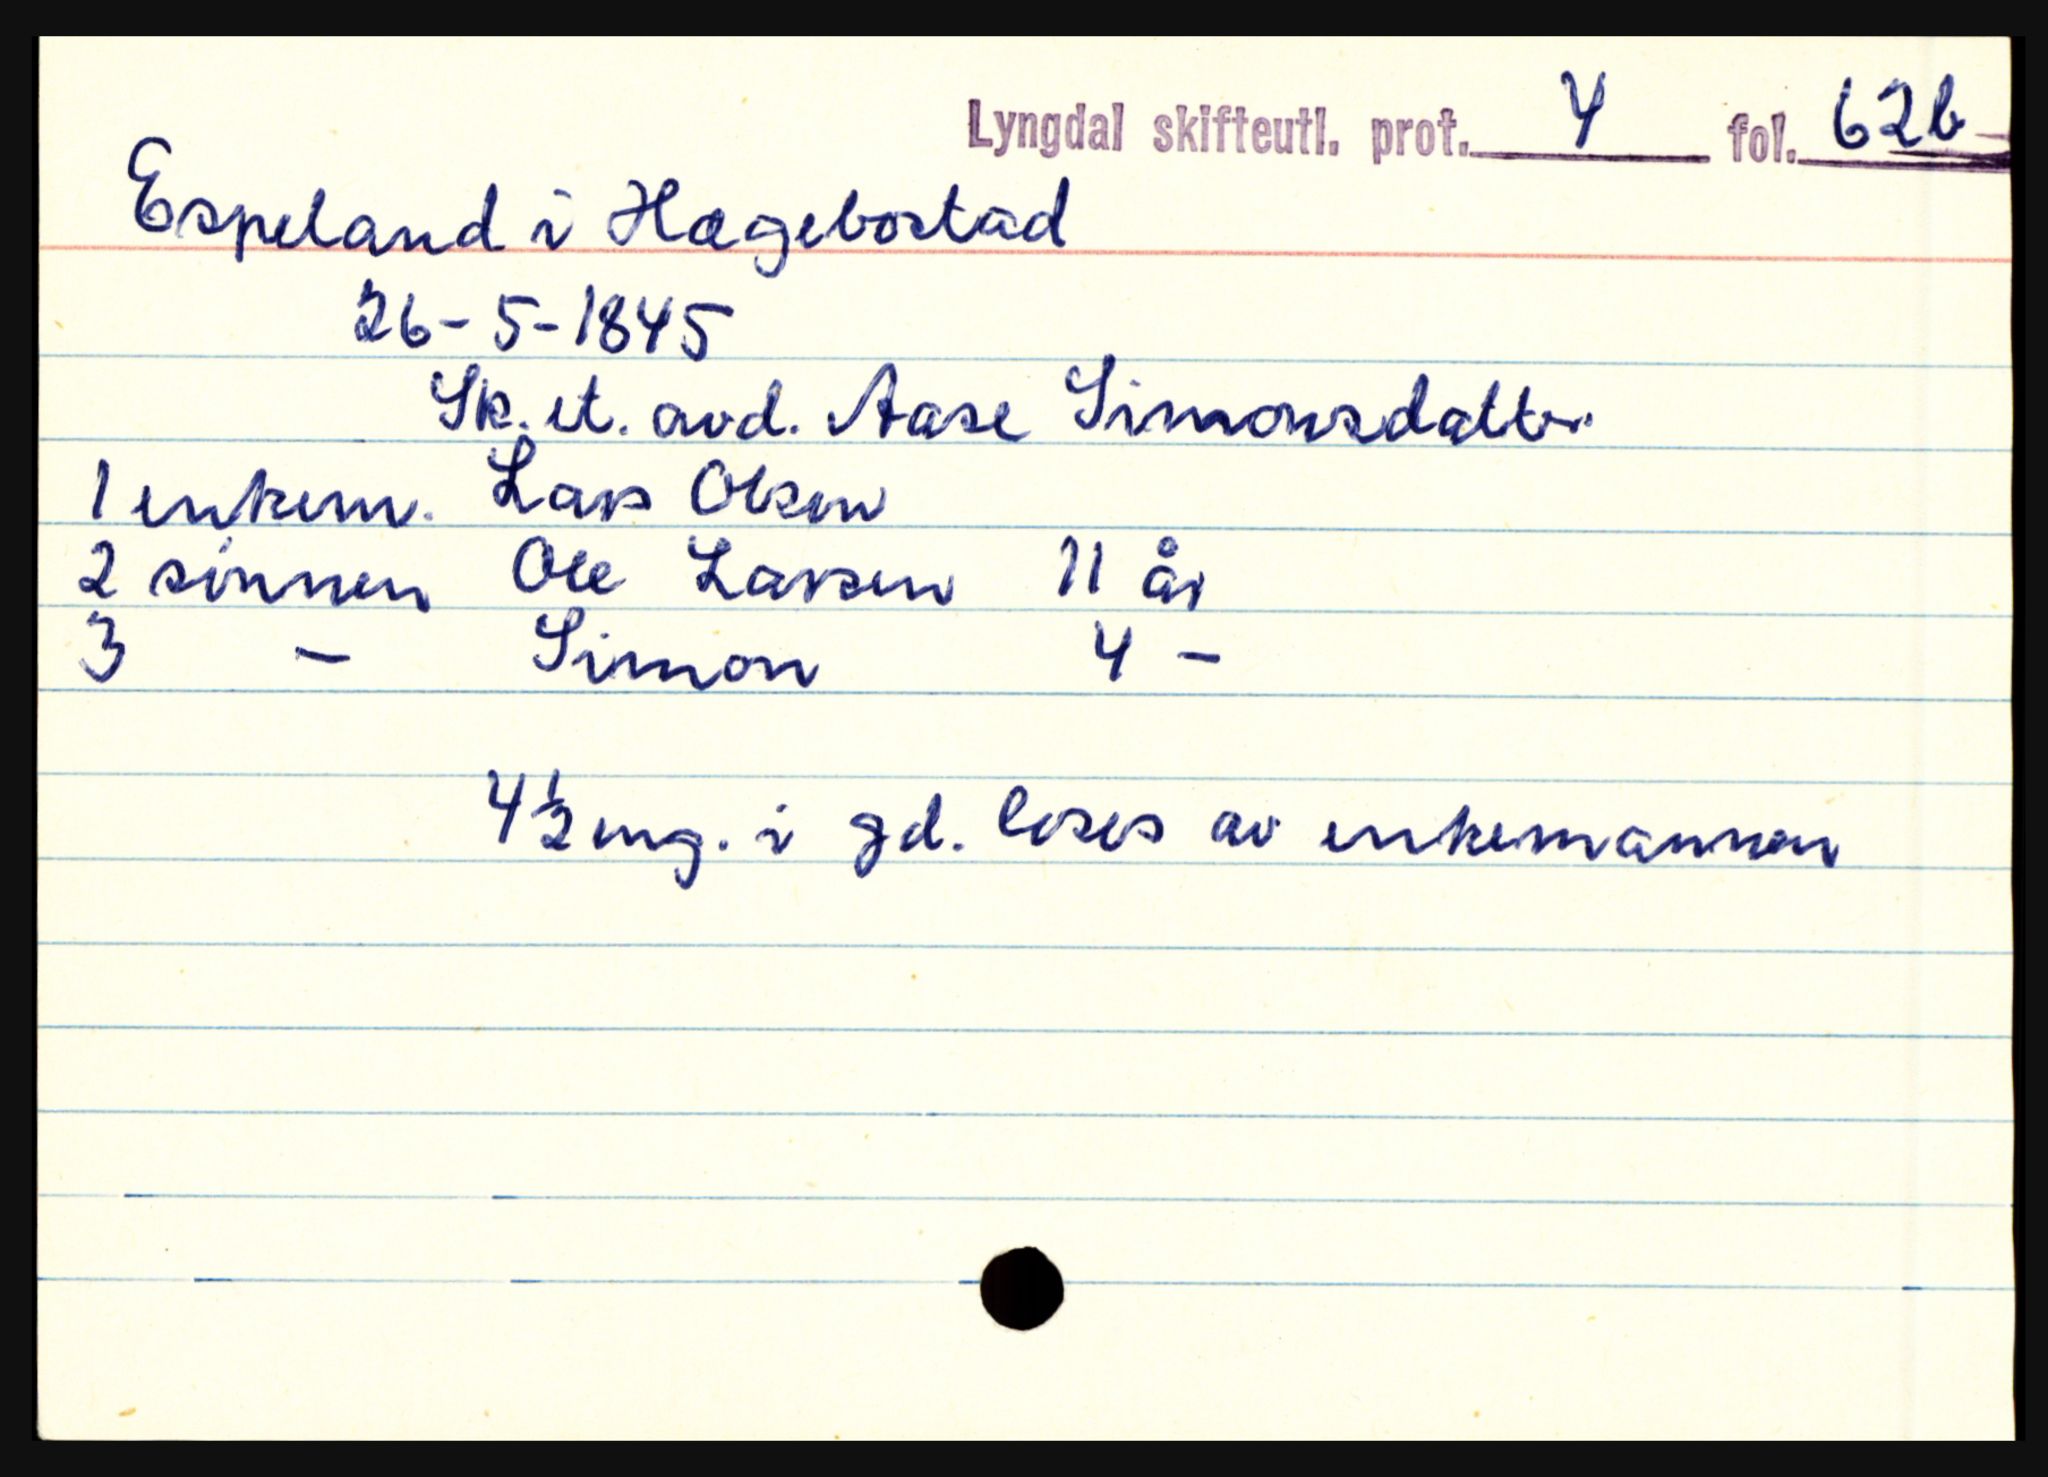 Lyngdal skifteutl. prot. 4 fol. 62b
Espeland i Hægebostad
26-5-1845
Sk. et. avd. Aase Simonsdatter
1 enkem. Lars Olsen
2 sønnen Ole Larsen 11 år
3 - Simon 4 -
4 1/2 mg. i gd. løses av enkemannen